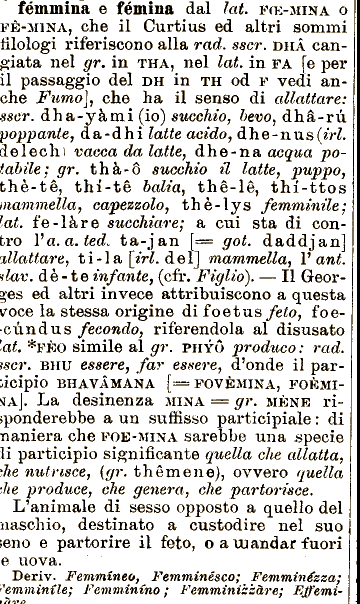 fémmina e fémina dal lat. FŒ-MINA o
FÊ-MINA, che il Curtius ed altri sommi
filologi riferiscono alla rad. sscr. DHÂ can-
giata nel gr. in THA, nel lat. in FA [e per
il passaggio del DH in TH od F vedi an-
che Fumo], che ha il senso di allattare:
sscr. dha-yàmi (io) succhio, bevo, dhâ-rú
poppante, da-dhi latte acido, dhe-nus (irl.
delech) vacca da latte, dhe-na acqua po-
tabile; gr. thà-ô succhio il latte, puppo,
thè-tê, thí-tê balia, thê-lê, thí-ttos
mammella, capezzolo, thè-lys femminile;
lat. fe-làre succhiare; a cui sta di con-
tro l'a. a. ted. ta-jan [= got. daddjan]
allattare, ti-la [irl. del] mammella, l'ant.
slav. dè-te infante, (cfr. Figlio). — Il Geor-
ges ed altri invece attribuiscono a questa
voce la stessa origine di foetus feto, foe-
cúndus fecondo, riferendola al disusato
lat. *FÈO simile al gr. PHYÔ produco: rad.
sscr. BHU essere, far essere, d'onde il par-
ticipio BHAVÂMANA [= FOVÈMINA, FOÈMI-
NA]. La desinenza MINA = gr. MÈNE ri-
sponderebbe a un suffisso participiale: di
maniera che FOE-MINA sarebbe una specie
di participio significante quella che allatta,
che nutrisce, (gr. thêmene), ovvero quella
che produce, che genera, che partorisce.
L'animale di sesso opposto a quello del
maschio, destinato a custodire nel suo
seno e partorire il feto, o a mandar fuori
le uova.
Deriv. Femmíneo, Femminésco; Femminézza;
Femminíle; Femminíno; Femminizzàre; Effemi-